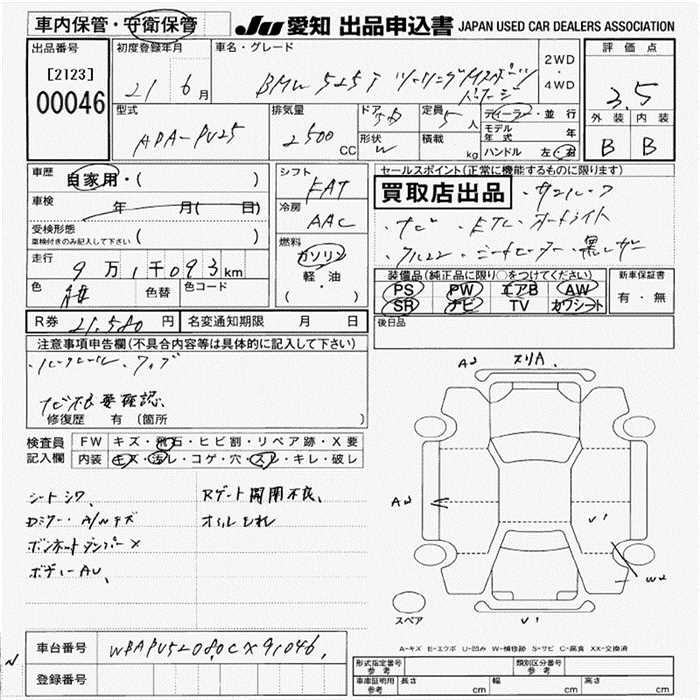 車内保管・守衛保管
JU 愛知 出品申込書 JAPAN USED CAR DEALERS ASSOCIATION
出品番号
[2123]
00046
初度登録年月
21年 6月
車名・グレード
BMW 525i ツーリング Mスポーツ
パッケージ
2WD
・
4WD
評価点
3.5
外装 内装
B B
型式
ABA-PU25
排気量
2500 CC
ドア
5D
形状
W
定員
5人
積載
kg
ディーラー・並行
モデル年式 年
ハンドル 左・右
車歴
自家用・( )
車検
年 月( 日)
受検形態
車検付きのみ記入して下さい ( )
走行
9万1千093km
色
紺
色替
色コード
シフト
FAT
冷房
AAC
燃料
ガソリン
軽・油
( )
セールスポイント(正常に機能するものに限ります)
買取店出品 ・サンルーフ
・ナビ ・ETC ・オートライト
・アルミ ・シートヒーター ・黒レザー
装備品(純正品に限り○をつけてください)
PS PW エアB AW
SR ナビ TV カワシート
新車保証書
有・無
後日品
R券 21,580円
名変通知期限 月 日
注意事項申告欄(不具合内容等は具体的に記入して下さい)
・ルーフレール
ナビ不良要確認、
修復歴 有(箇所 )
検査員
記入欄
FW キズ・飛石・ヒビ割・リペア跡・X要
内装 キズ・汚レ・コゲ・穴・スレ・キレ・破レ
シートシワ、
Rゲート開閉不良、
Dミラー A/Wキズ
オイルもれ
ボンネットダンパー×
ボディーAU、
A2
スリA、
A2
V1
W2
V1
スペア
A-キズ E-エクボ U-凹み W-補修跡 S-サビ C-腐食 XX-交換済
車台番号 WBAPU52080CX91046
登録番号
型式指定番号
参考
類別区分番号
参考
車庫証明用
参考
長さ cm
幅 cm
高さ cm